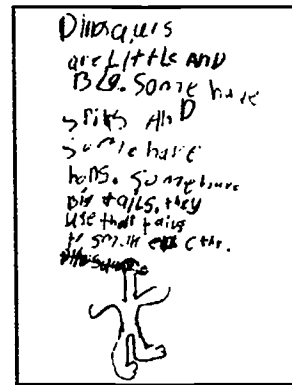 Dinosaurs
are Little AND
BIG. Some have
spiks AnD
some have
hons. Some have
Big tails. they
use their tails
to smak